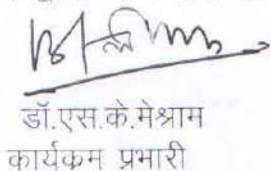 डॉ.एस.के.मेश्राम
कार्यकम प्रभारी